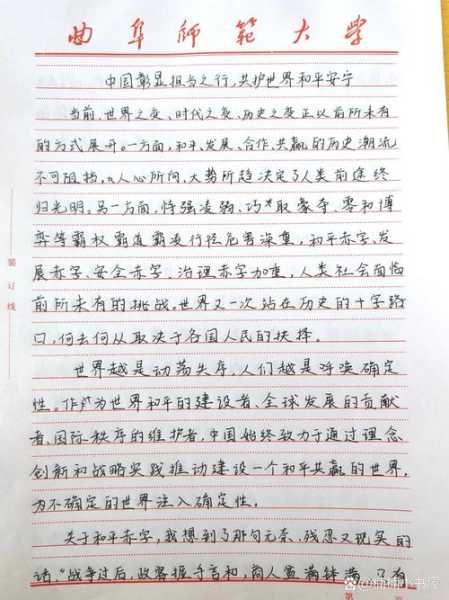 曲阜师范大学
中国彰显担当之行，共护世界和平安宁
当前，世界之变、时代之变、历史之变正以前所未有
的方式展开。一方面，和平、发展、合作、共赢的历史潮流
不可阻挡，人心所向、大势所趋决定了人类前途终
归光明。另一方面，恃强凌弱、巧取豪夺、零和博
弈等霸权霸道霸凌行径危害深重，和平赤字、发
展赤字、安全赤字、治理赤字加重，人类社会面临
前所未有的挑战。世界又一次站在历史的十字路
口，何去何从取决于各国人民的抉择。
世界越是动荡失序，人们越是呼唤确定
性。作为世界和平的建设者、全球发展的贡献
者、国际秩序的维护者，中国始终致力于通过理念
创新和战略实践推动建设一个和平共赢的世界，
为不确定的世界注入确定性。
关于和平赤字，我想到了那句无奈、残忍又现实的
话：“战争过后，政客握手言和，商人盆满钵满
装订线